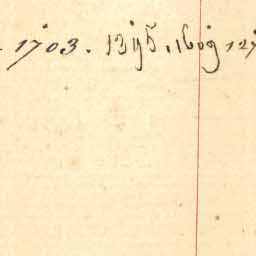 . 1703 . 1395 . 1609 127